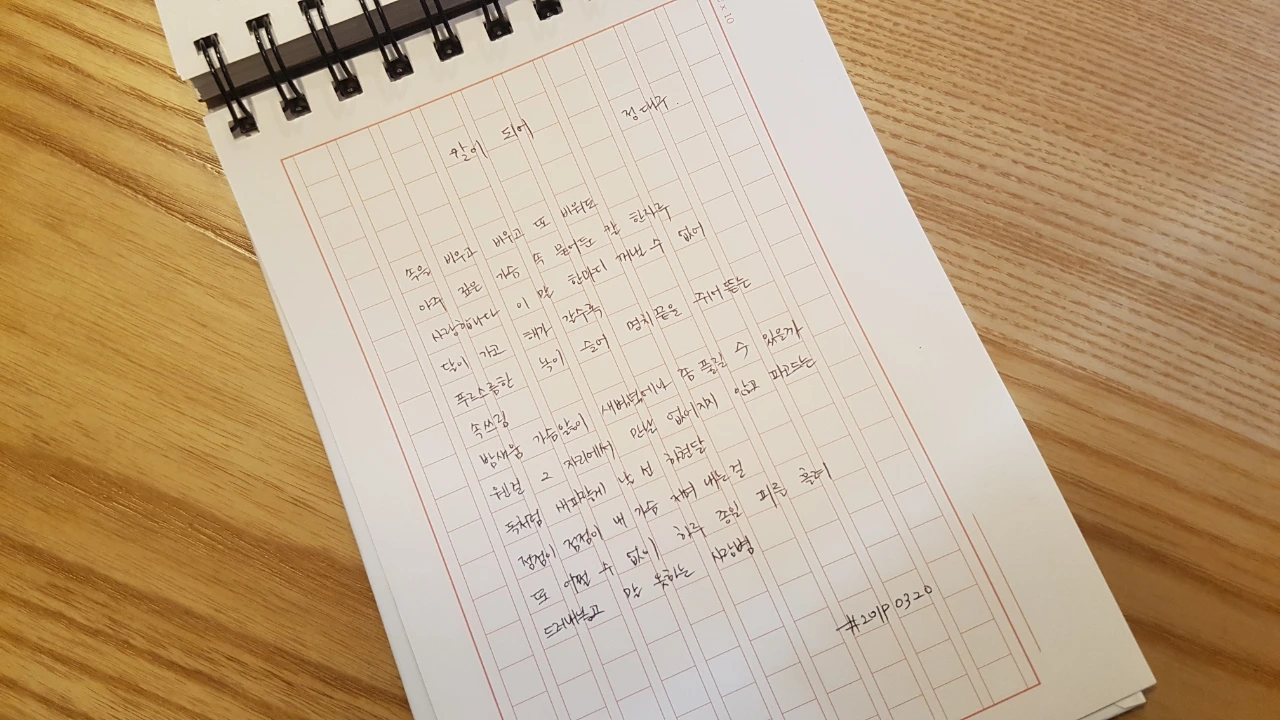 말이 되어
정대구.
속을 비우고 비우고 또 비워도
아주 깊은 가슴 속 묻어둔 말 한자루
사랑합니다 이 말 한마디 꺼낼 수 없어
달이 가고 해가 갈수록
푸르스름한 녹이 슬어 명치끝을 쥐어뜯는
속쓰림
밤새움 가슴앓이 새벽녘에나 좀 풀릴 수 있을까
웬걸 그 자리에서 한발 없어지지 않고 파고드는
독처럼 새파랗게 날 선 하현달
점점이 점점이 내 가슴 저며 내는 걸
또 어쩔 수 없이 하루 종일 피를 흘려
드러내놓고 말 못하는 사랑병
#2019.0320